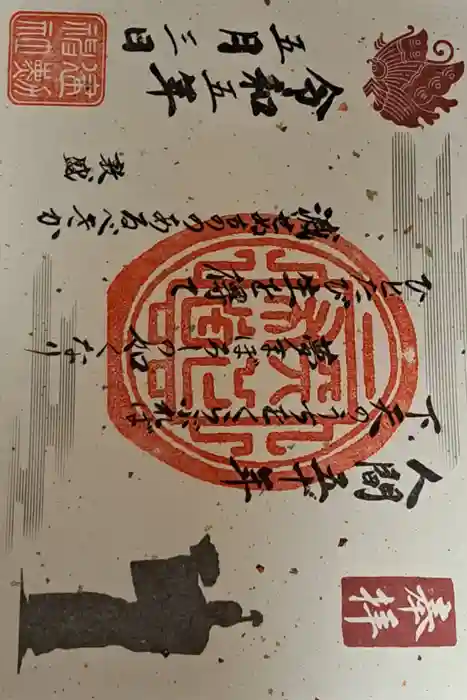 奉拝
人間五十年
下天のうちをくらぶれば
夢まぼろしの如くなり
ひとたび生を得て
滅せぬもののあるべきか
敦盛
令和五年
五月二日